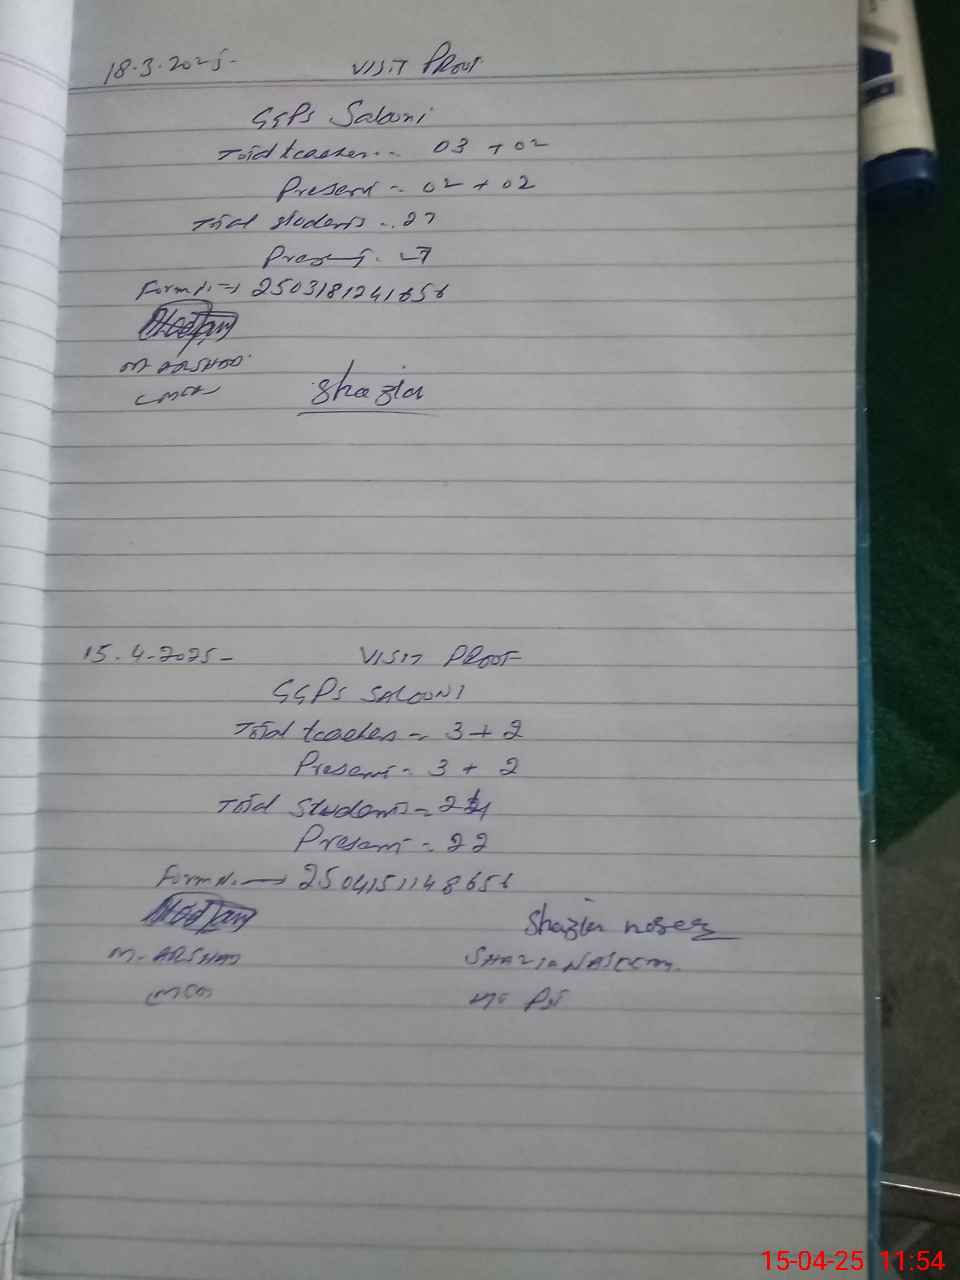 18.3.2025- VISIT PROOF
GGPS Salooni
Total teachers -- 03 + 02
Present - 02 + 02
Total students -- 27
Present -
Form N. → 2503181241656
M. ARSHAD
Shazia
15.4.2025- VISIT PROOF
GGPS SALOONI
Total teachers - 3 + 2
Present - 3 + 2
Total students -
Present - 22
Form N. → 2504151148656
Shazia
M. ARSHAD SHAZIA NASEEM
15-04-25 11:54